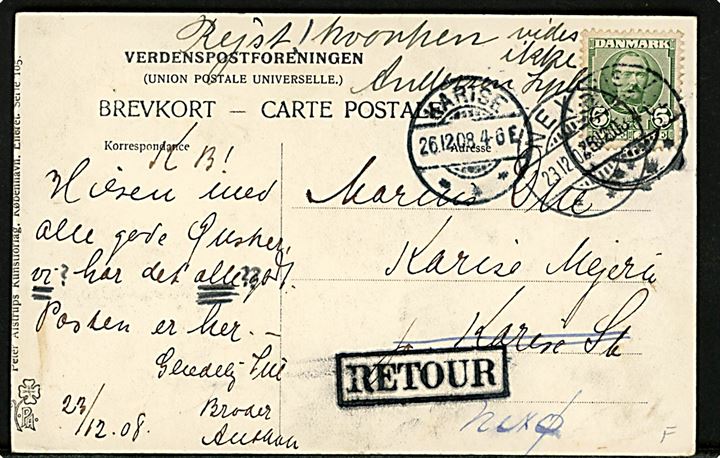 Rejst / hvorhen vides
ikke
VERDENSPOSTFORENINGEN
(UNION POSTALE UNIVERSELLE.)
BREVKORT – CARTE POSTALE
DANMARK
5 5
KARISE
26.12.08.4-6E
NEXØ
23.12.08
Korrespondance
Adresse
K B!
Hilsen med
alle gode Ønsker,
vi? har det alle?? godt.
Posten er her. –
Glædelig Jul
23/12.08.
Broder
Marius
Karise Mejeri
pr Karise St
RETOUR
Nexø
F
Peter Alstrups Kunstforlag, København. Eneret. Serie 105.